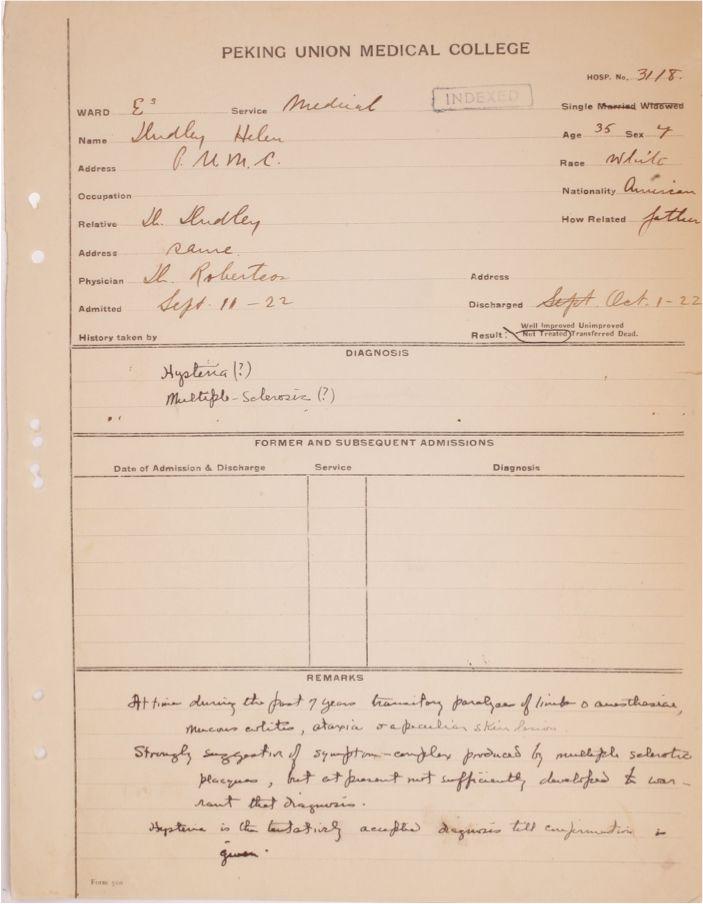 PEKING UNION MEDICAL COLLEGE
HOSP. No. 3118.
WARD E3 Service Medical INDEXED Single Married Widowed
Name Dudley Helen Age 35 Sex F
Address P.U.M.C. Race White
Occupation Nationality American
Relative Dr. Dudley How Related father
Address same.
Physician Dr. Robertson Address
Admitted Sept. 11-22 Discharged Sept. Oct. 1-22
History taken by Result: Well Improved Unimproved
Not Treated Transferred Dead.
DIAGNOSIS
Hysteria (?)
Multiple-Sclerosis (?)
FORMER AND SUBSEQUENT ADMISSIONS
Date of Admission & Discharge Service Diagnosis
REMARKS
At time during the past 7 years transitory paralyses of limbs anesthesiae,
mucous colitis, ataxia peculiar skin lesion
Strongly suggestion of symptom-complex produced by multiple sclerotic
placques, but at present not sufficiently developed to war-
rant that diagnosis.
Hysteria is the tentatively accepted diagnosis till confirmation is
given.
Form 500